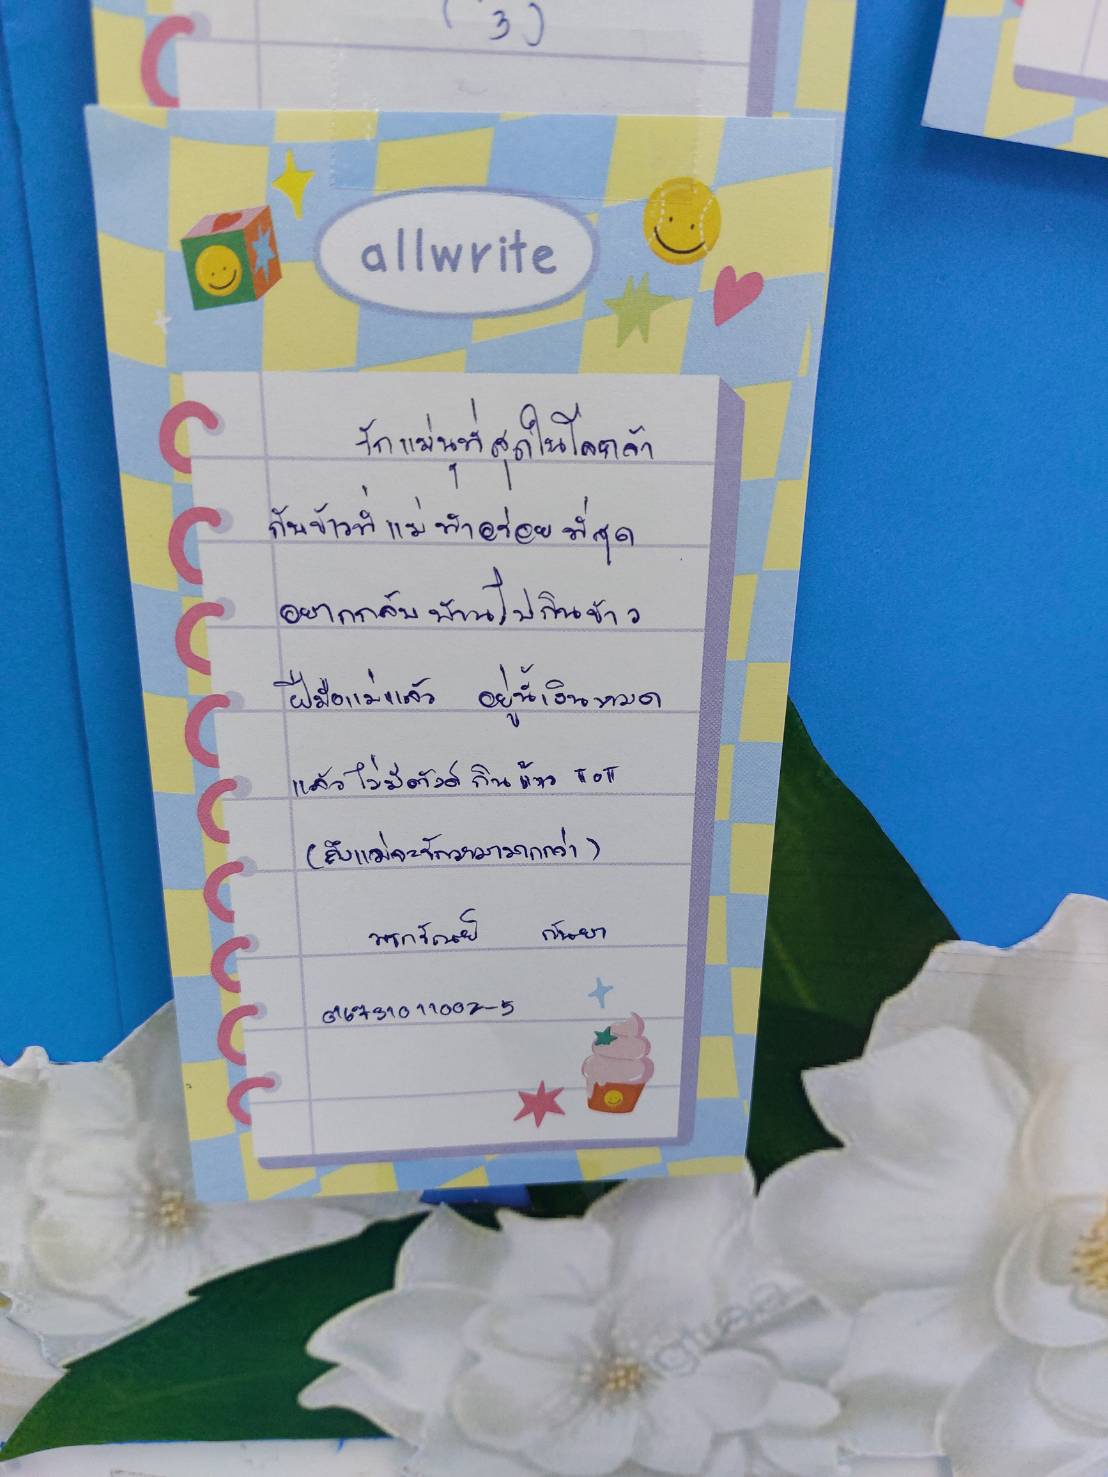 3
allwrite
รักแม่นุที่สุดในโลกล้า
กับข้าวที่แม่ทำอร่อยที่สุด
อยากกลับบ้านไปกินข้าว
ฝีมือแม่แล้ว อยู่นี้เงินหมด
แล้วไม่มีตังค์กิน TOT
(ถึงแม่จะรักหมามากกว่า)
กันยา